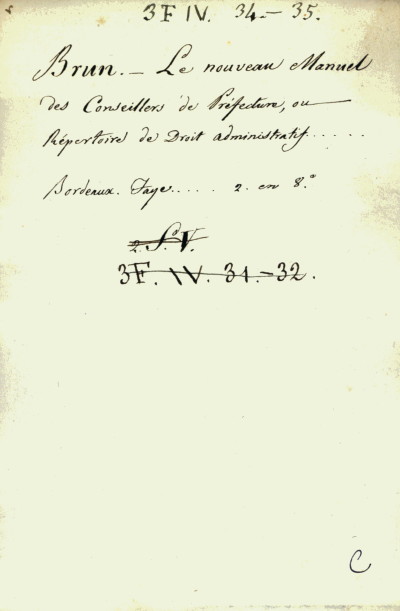 3 F IV. 34.–35.
Brun. – Le nouveau Manuel
des Conseillers de Préfecture, ou
Répertoire de Droit administratif......
Bordeaux. Faye..... 2. en 8.°
3F. IV. 31.–32.
C